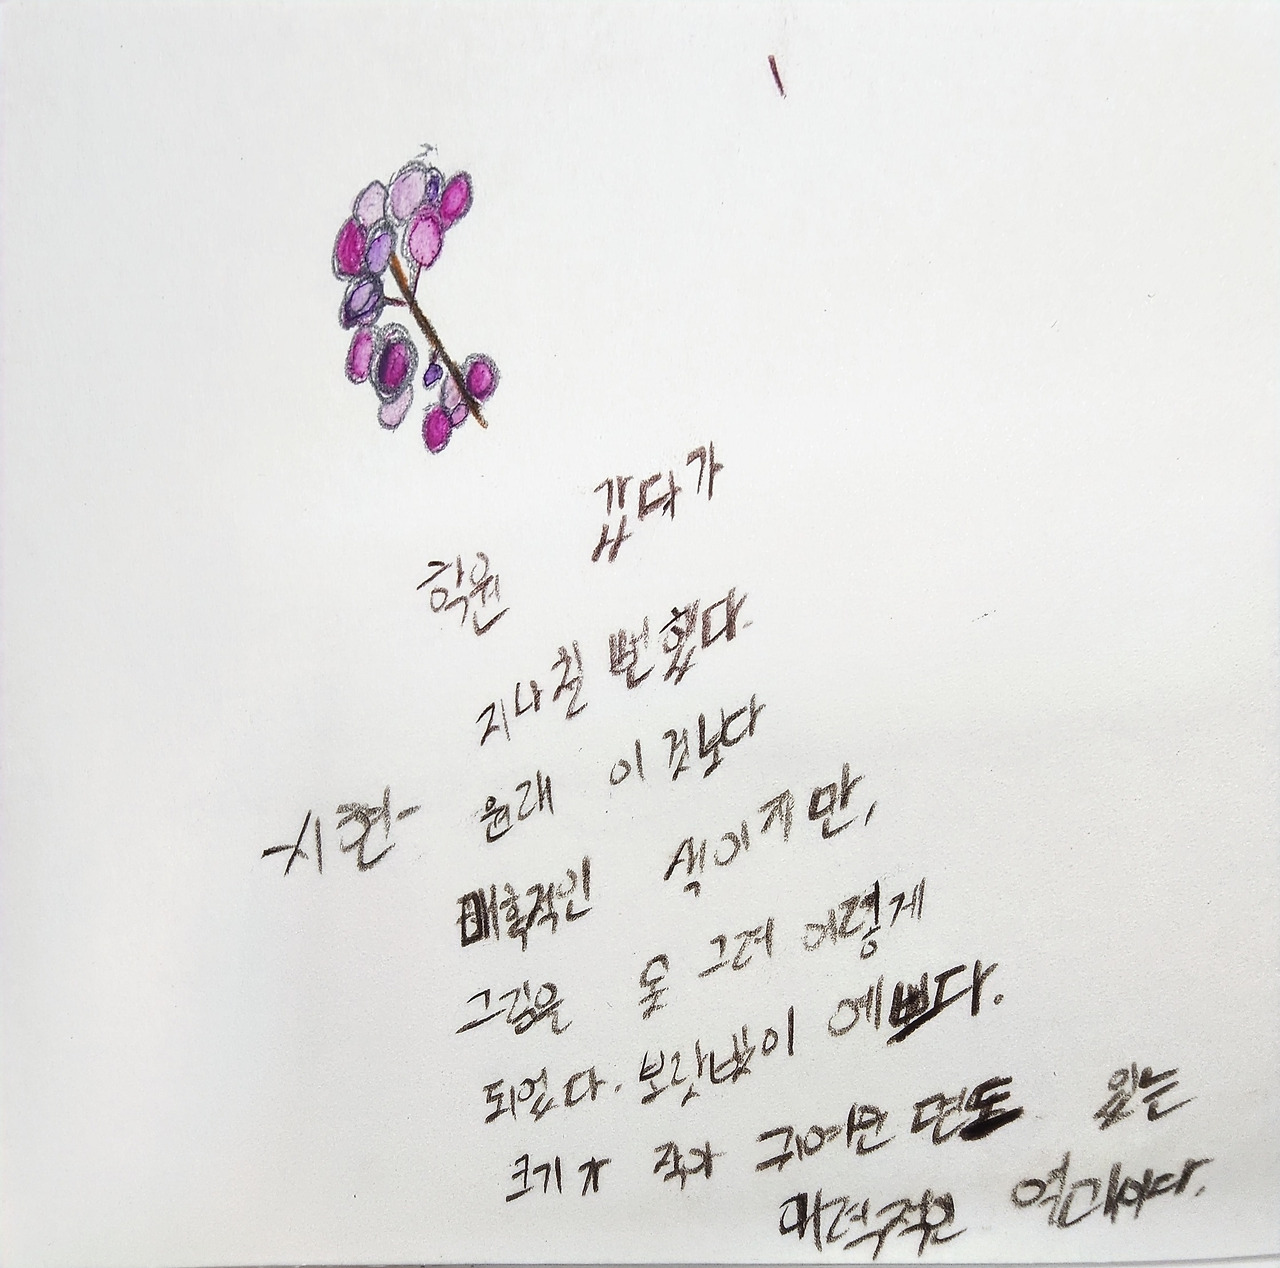 학원 갔다가
지나칠 뻔했다.
원래 이것보다
-시현-
매혹적인 색이지만,
그림은 못 그려 이렇게
되었다. 보랏빛이 예쁘다.
크기가 작아 귀여운 면도 있는
매력적인 열매이다.